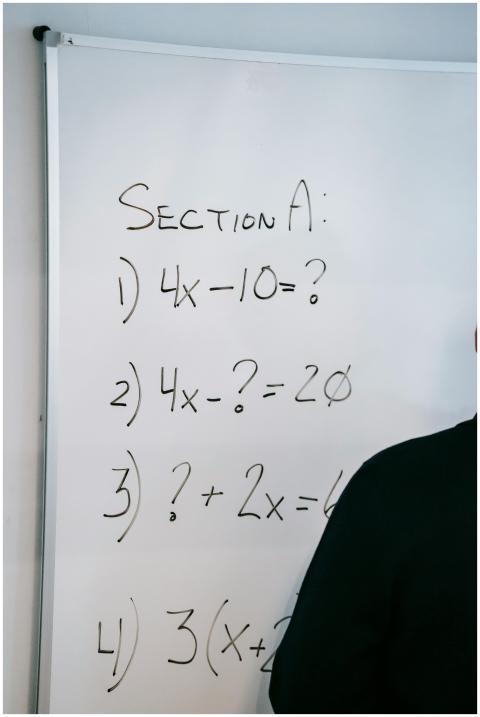 SECTION A:
1) 4x-10=?
2) 4x-?=20
3) ? + 2x = 6
4) 3(x+2